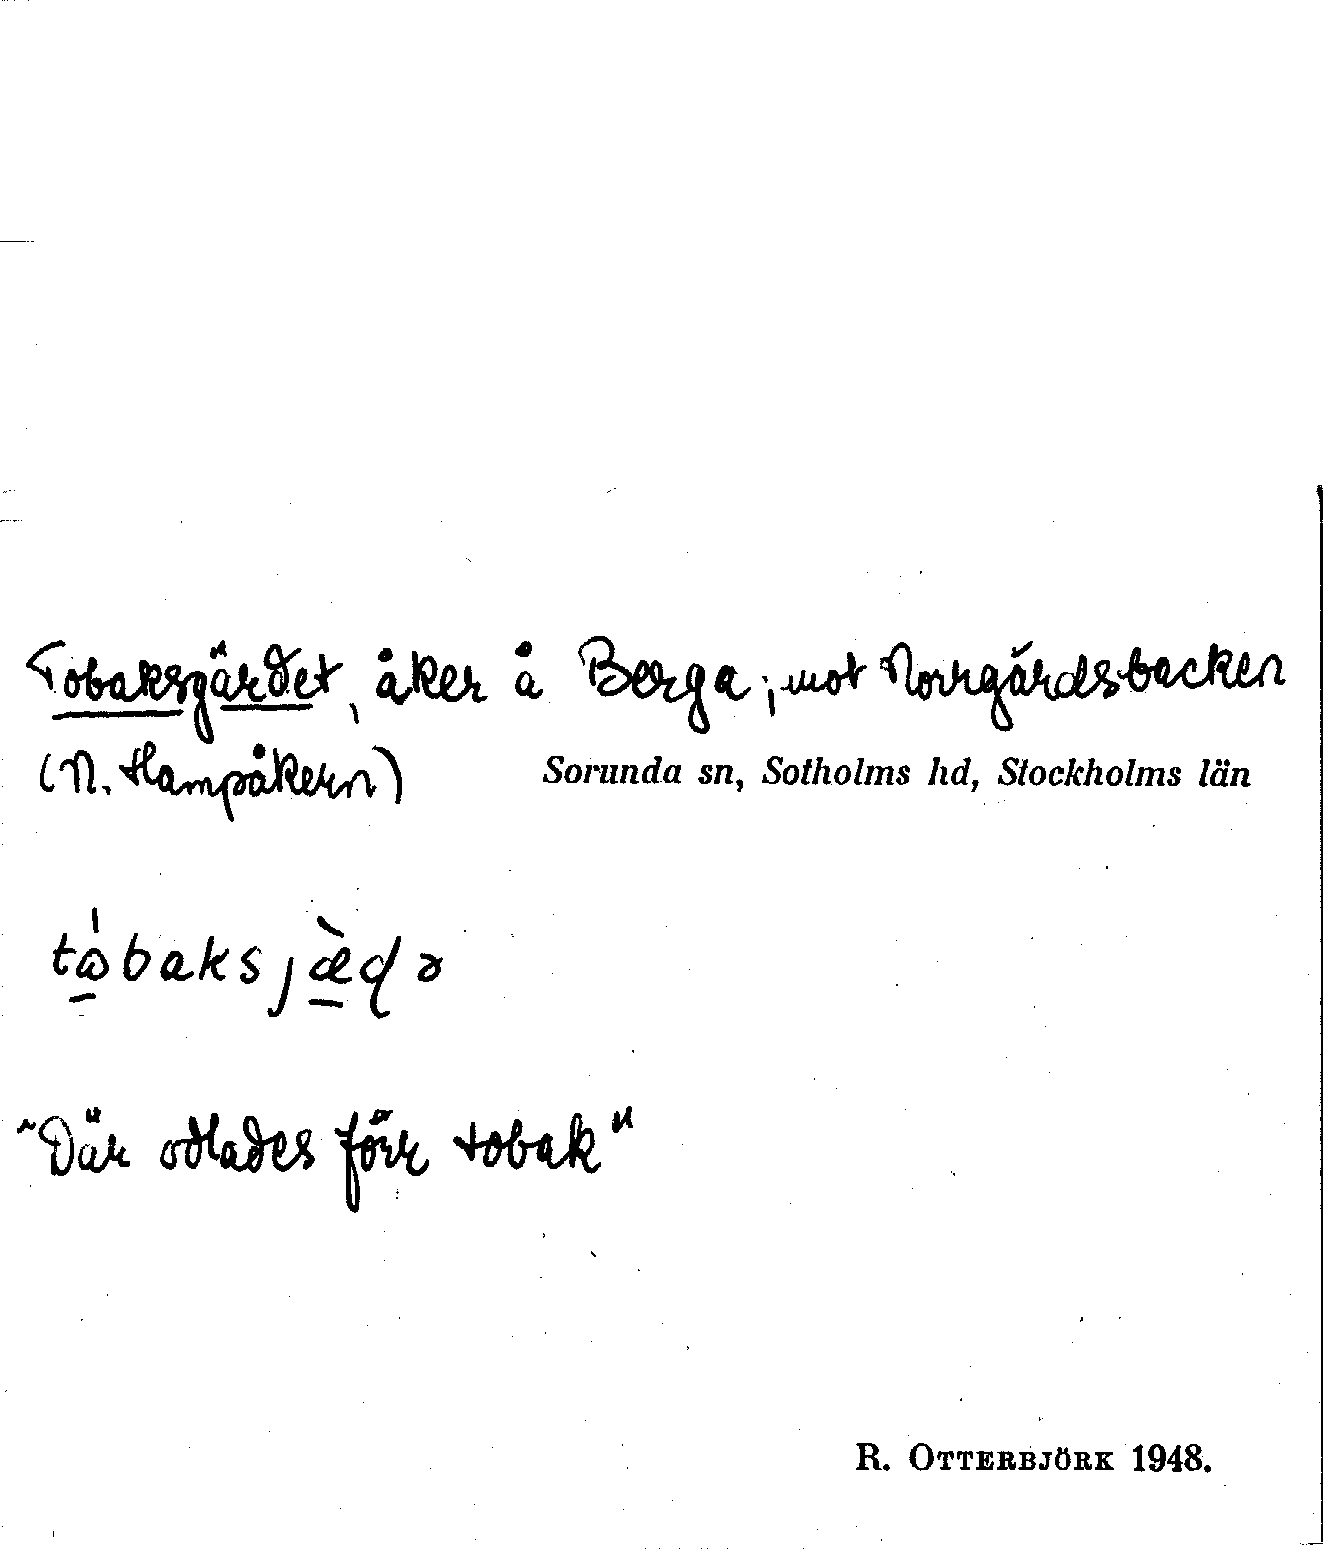 Tobaksgärdet, åker å Berga; mot Norrgårdsbacken
(N. Hampåkern) Sorunda sn, Sotholms hd, Stockholms län
"Där odlades förr tobak"
R. OTTERBJÖRK 1948.